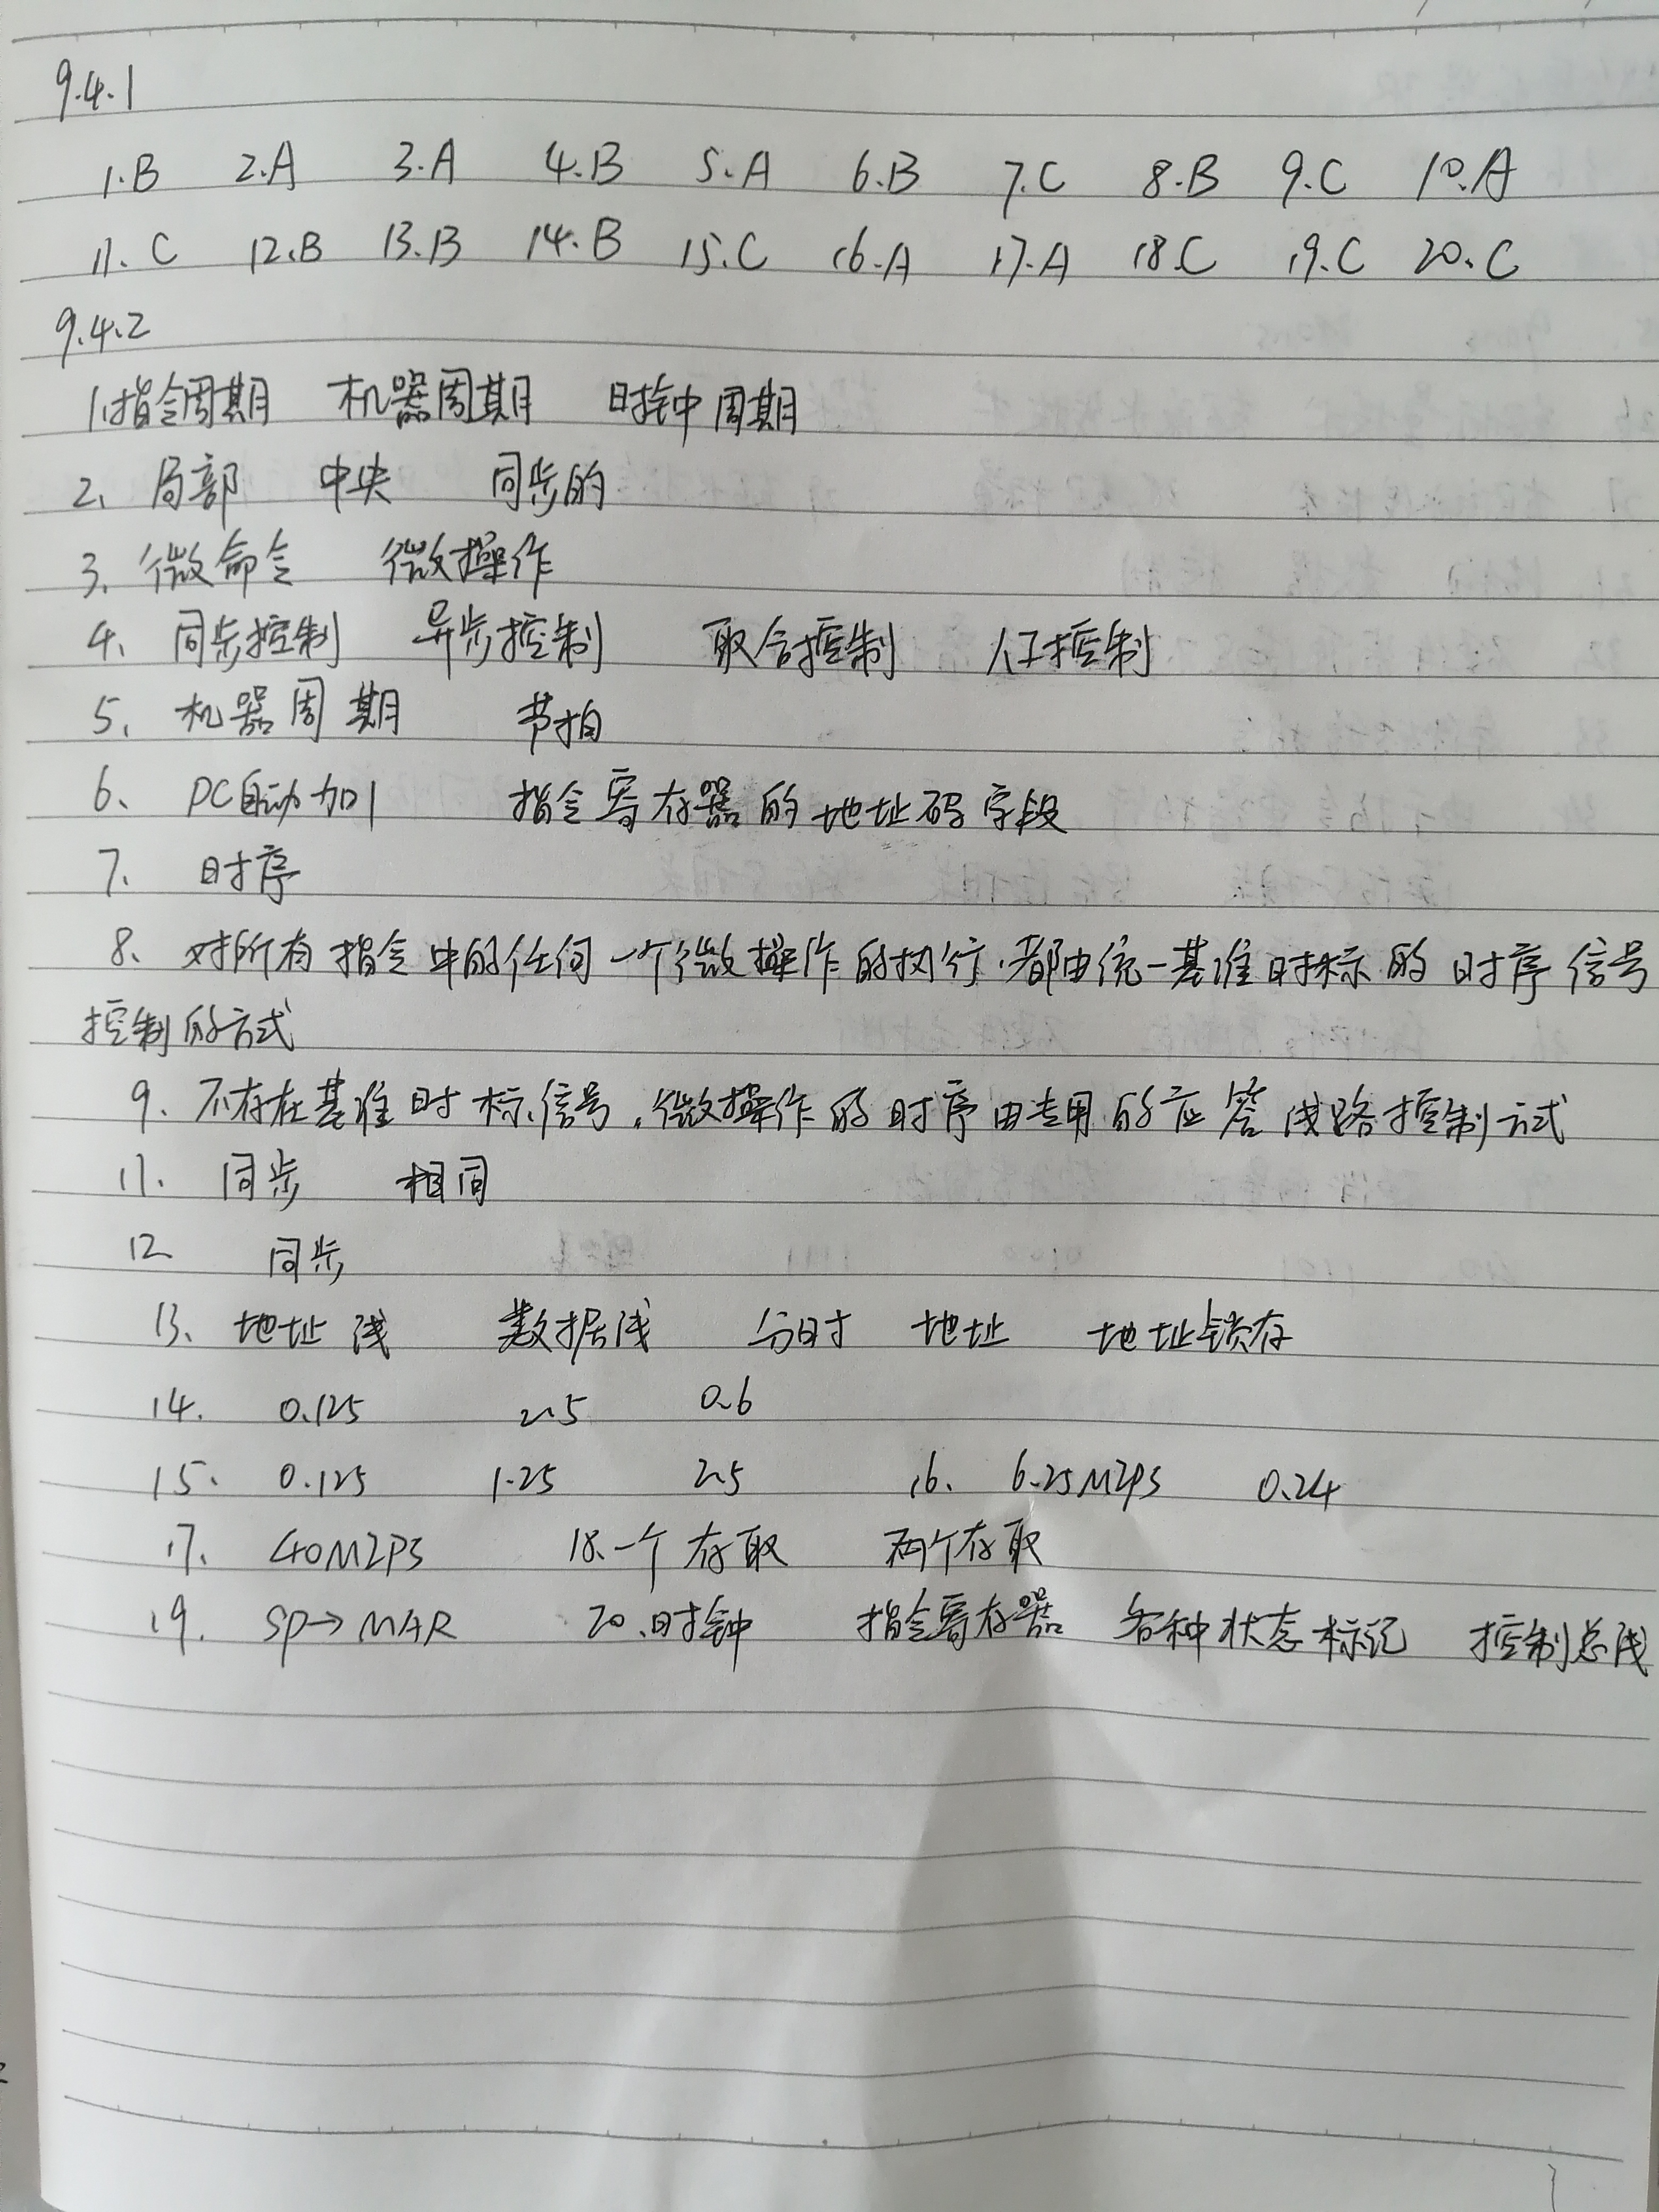 9.4.1
1.B 2.A 3.A 4.B 5.A 6.B 7.C 8.B 9.C 10.A
11.C 12.B 13.B 14.B 15.C 16.A 17.A 18.C 19.C 20.C
9.4.2
1.指令周期 机器周期 时钟周期
2、局部 中央 同步的
3、微命令 微操作
4、同步控制 异步控制 联合控制 人工控制
5、机器周期 节拍
6、PC自动加1 指令寄存器的地址码字段
7、时序
8、对所有指令中的任何一个微操作的执行,都由统一基准时标的时序信号
控制的方式
9、不存在基准时标信号,微操作的时序由专用的应答线路控制方式
11. 同步 相同
12 同步
13、地址线 数据线 分时 地址 地址锁存
14. 0.125 2.5 0.6
15. 0.125 1.25 2.5 16. 6.25MIPS 0.24
17. 40MIPS 18.一个存取 两个存取
19. SP→MAR 20.时钟 指令寄存器 各种状态标记 控制总线